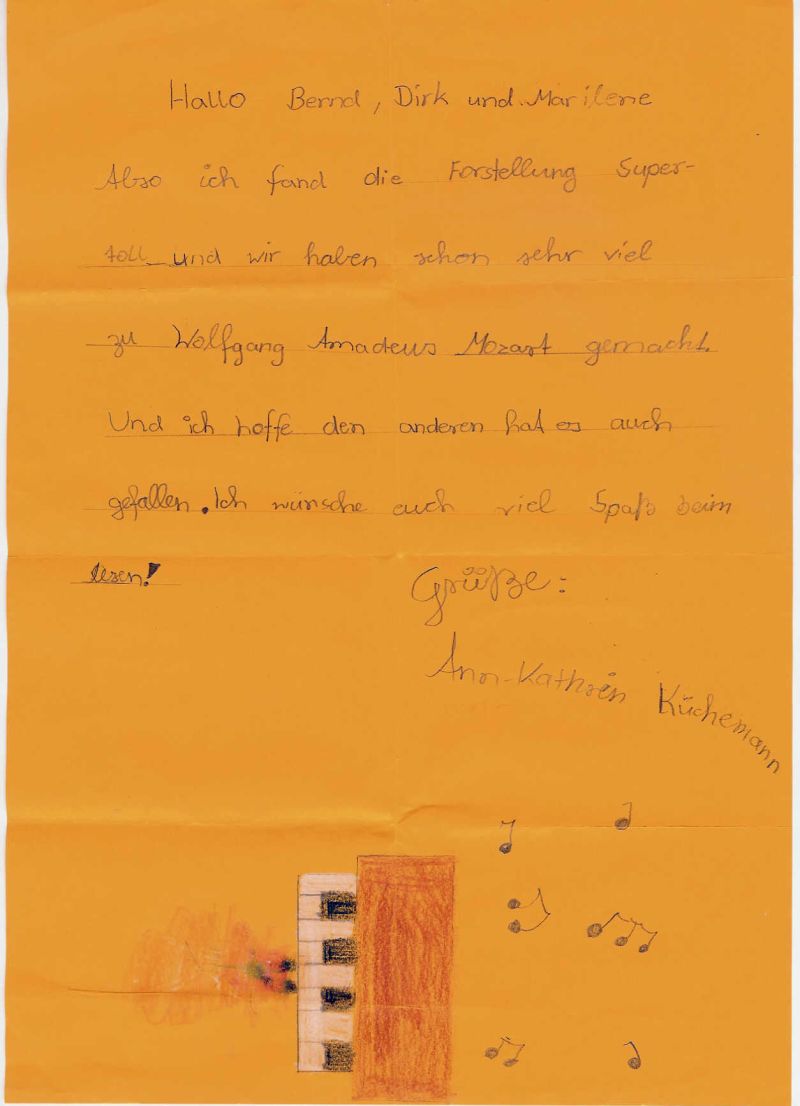 Hallo Bernd, Dirk und Marilene
Also ich fand die Forstellung Super-
toll und wir haben schon sehr viel
zu Wolfgang Amadeus Mozart gemacht.
Und ich hoffe den anderen hat es auch
gefallen. Ich wünsche euch viel Spaß beim
lesen!
Grüße:
Ann-Kathrin Küchemann